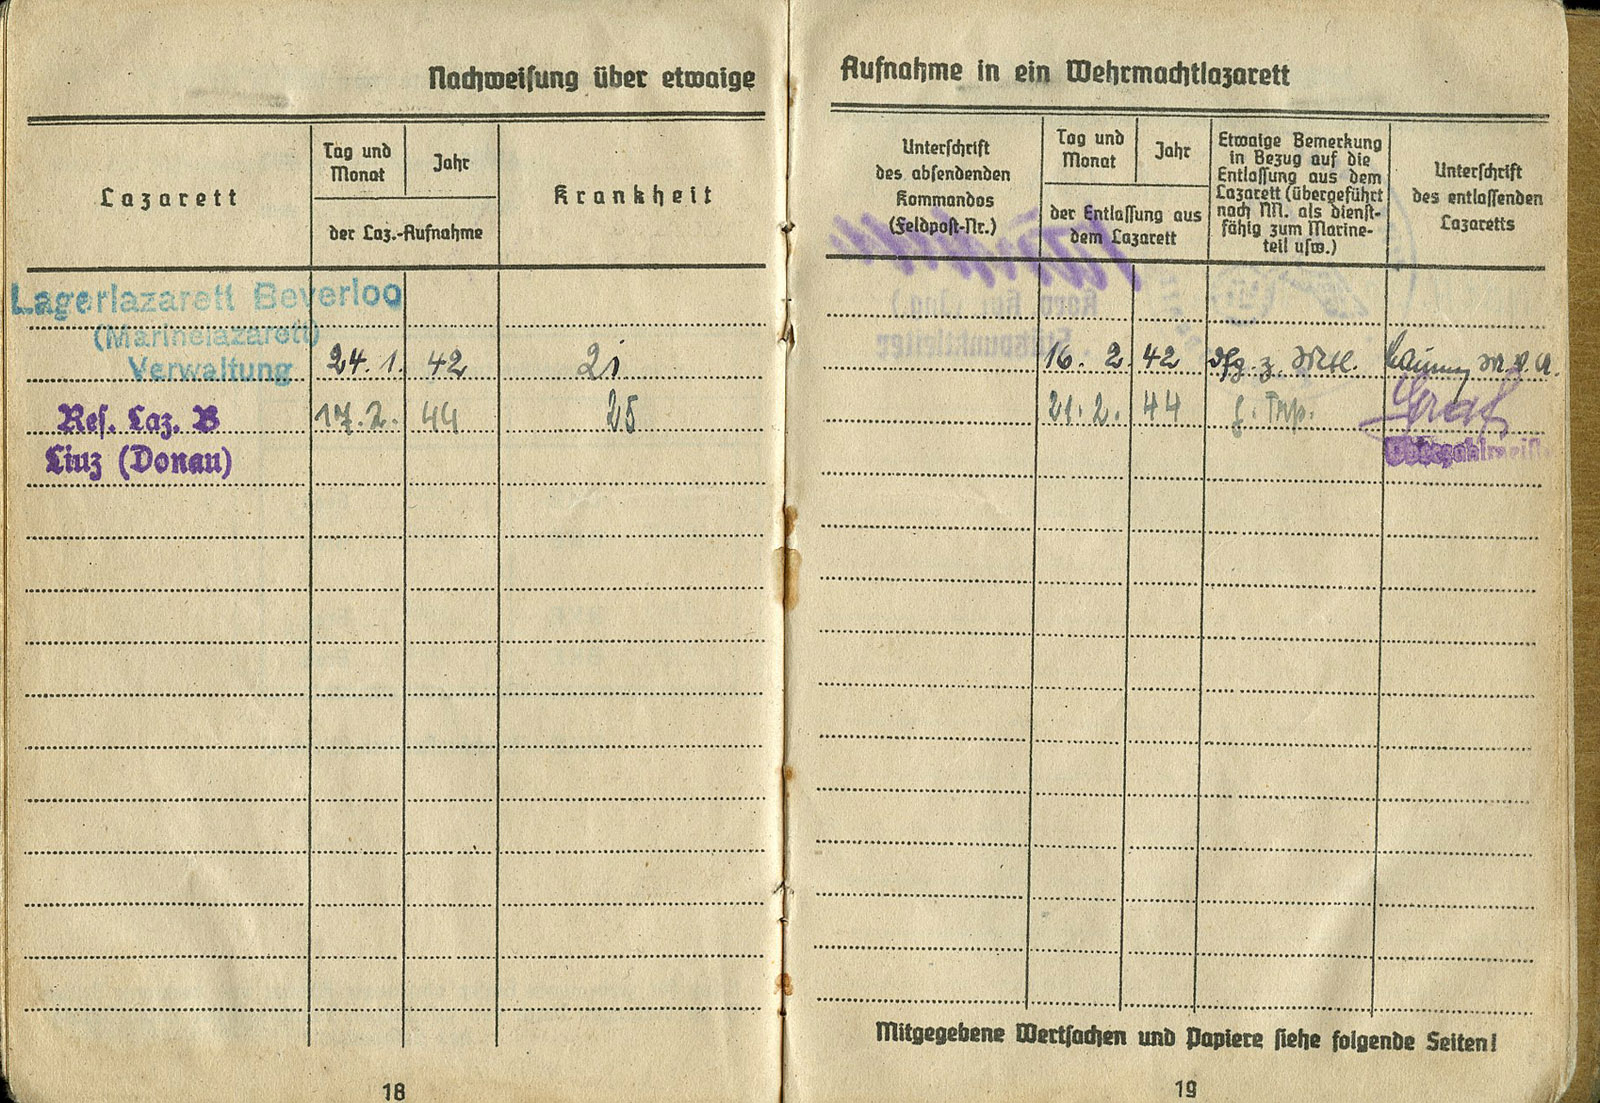 Nachweisung über etwaige
Lazarett
Tag und
Monat
Jahr
der Laz.-Aufnahme
Krankheit
Lagerlazarett Beverloo
(Marinelazarett)
Verwaltung
24. 1. 42
Res. Laz. B
17. 2. 44 25
Linz (Donau)
18
Aufnahme in ein Wehrmachtlazarett
Unterschrift
des absendenden
Kommandos
(Feldpost-Nr.)
Tag und
Monat
Jahr
der Entlassung aus
dem Lazarett
Etwaige Bemerkung
in Bezug auf die
Entlassung aus dem
Lazarett (übergeführt
nach NN. als dienst-
fähig zum Marine-
teil usw.)
Unterschrift
des entlassenden
Lazaretts
16. 2. 42
21. 2. 44 z. Trp. Graf
Mitgegebene Wertsachen und Papiere siehe folgende Seiten!
19